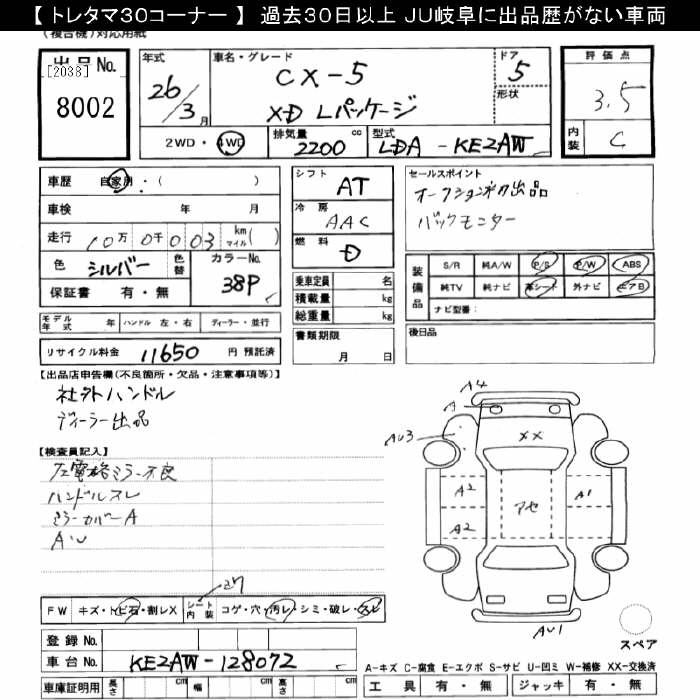 【 トレタマ30コーナー 】 過去30日以上 JU岐阜に出品歴がない車両
(複合機)対応用紙
出品No.
[2038]
8002
年式
26/3月
車名・グレード
CX-5
XD Lパッケージ
ドア
5
形状
評価点
3.5
内装
C
2WD・4WD
排気量
2200 cc
型式
LDA - KE2AW
車歴 自家用・( )
車検 年 月
走行 10万 0千003 km マイル( )
色 シルバー 色替 カラーNo. 38P
保証書 有・無
シフト
AT
冷房
AAC
燃料
D
乗車定員 名
積載量 kg
総重量 kg
書類期限
月 日
セールスポイント
オークション初出品
バックモニター
装備品
S/R 純A/W P/S P/W ABS
純TV 純ナビ 革シート 外ナビ エアB
ナビ型番:
後日品
モデル年式 年 ハンドル 左・右 ディーラー・並行
リサイクル料金 11650 円 預託済
【出品店申告欄(不良箇所・欠品・注意事項等)】
社外ハンドル
ディーラー出品
【検査員記入】
左電格ミラー不良
ハンドルスレ
ミラーカバーA
AU
A4
A
AU3
XX
A2
アセ
A1
A2
AU1
スペア
FW キズ・トビ石・割レX シート内装 コゲ・穴・汚レ・シミ・破レ・スレ
登録No.
車台No. KE2AW-128072
車庫証明用 長さ cm 幅 cm 高さ cm
A-キズ C-腐食 E-エクボ S-サビ U-凹ミ W-補修 XX-交換済
工具 有・無 ジャッキ 有・無